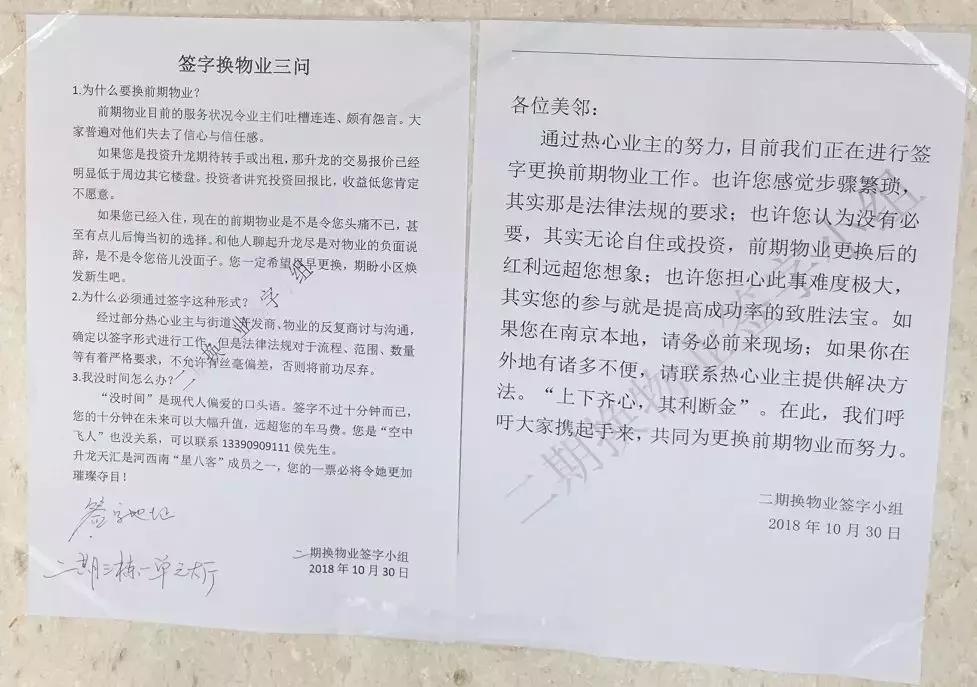 签字换物业三问
1.为什么要换前期物业？
前期物业目前的服务状况令业主们吐槽连连、颇有怨言。大
家普遍对他们失去了信心与信任感。
如果您是投资升龙期待转手或出租，那升龙的交易报价已经
明显低于周边其它楼盘。投资者讲究投资回报比，收益低您肯定
不愿意。
如果您已经入住，现在的前期物业是不是令您头痛不已，甚
至有点儿后悔当初的选择。和他人聊起升龙尽是对物业的负面说
辞，是不是令您倍儿没面子。您一定希望尽早更换，期盼小区焕
发新生吧。
2.为什么必须通过签字这种形式？
经过部分热心业主与街道、开发商、物业的反复商讨与沟通，
确定以签字形式进行工作。但是法律法规对于流程、范围、数量
等有着严格要求，不允许有丝毫偏差，否则将前功尽弃。
3.我没时间怎么办？
“没时间”是现代人偏爱的口头语。签字不过十分钟而已，
您的十分钟在未来可以大幅升值，远超您的车马费。您是“空中
飞人”也没关系，可以联系 13390909111 侯先生。
升龙天汇是河西南“星八客”成员之一，您的一票必将令她更加
璀璨夺目！
签字地址
二期三栋一单元大厅
二期换物业签字小组
2018 年 10 月 30 日
各位美邻：
通过热心业主的努力，目前我们正在进行签
字更换前期物业工作。也许您感觉步骤繁琐，
其实那是法律法规的要求；也许您认为没有必
要，其实无论自住或投资，前期物业更换后的
红利远超您想象；也许您担心此事难度极大，
其实您的参与就是提高成功率的致胜法宝。如
果您在南京本地，请务必前来现场；如果你在
外地有诸多不便，请联系热心业主提供解决方
法。“上下齐心，其利断金”。在此，我们呼
吁大家携起手来，共同为更换前期物业而努力。
二期换物业签字小组
2018 年 10 月 30 日
二期换物业签字小组